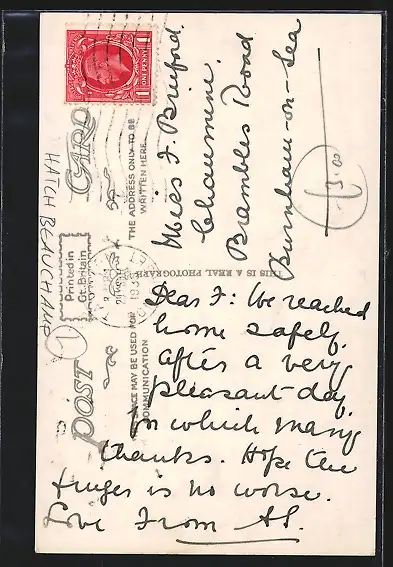 POST CARD
Printed in
Gt. Britain
THE ADDRESS ONLY TO BE
WRITTEN HERE
SPACE MAY BE USED FOR
COMMUNICATION
THIS IS A REAL PHOTOGRAPH
ONE PENNY
1
1
HATCH BEAUCHAMP
1
3.00
Miss J. Binford.
Brambles Road
Burnham-on-Sea
Dear J: We reached
home safely
after a very
pleasant day,
for which many
thanks. Hope the
finger is no worse.
Love from